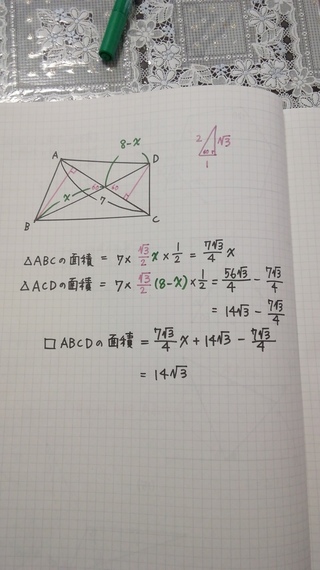 8-x
A
D
2
√3
60
1
60
60
x
7
B
C
△ABCの面積 = 7×√3/2 x×1/2 = 7√3/4 x
△ACDの面積 = 7×√3/2 (8-x)×1/2 = 56√3/4 - 7√3/4
= 14√3 - 7√3/4
□ABCDの面積 = 7√3/4 x + 14√3 - 7√3/4
= 14√3